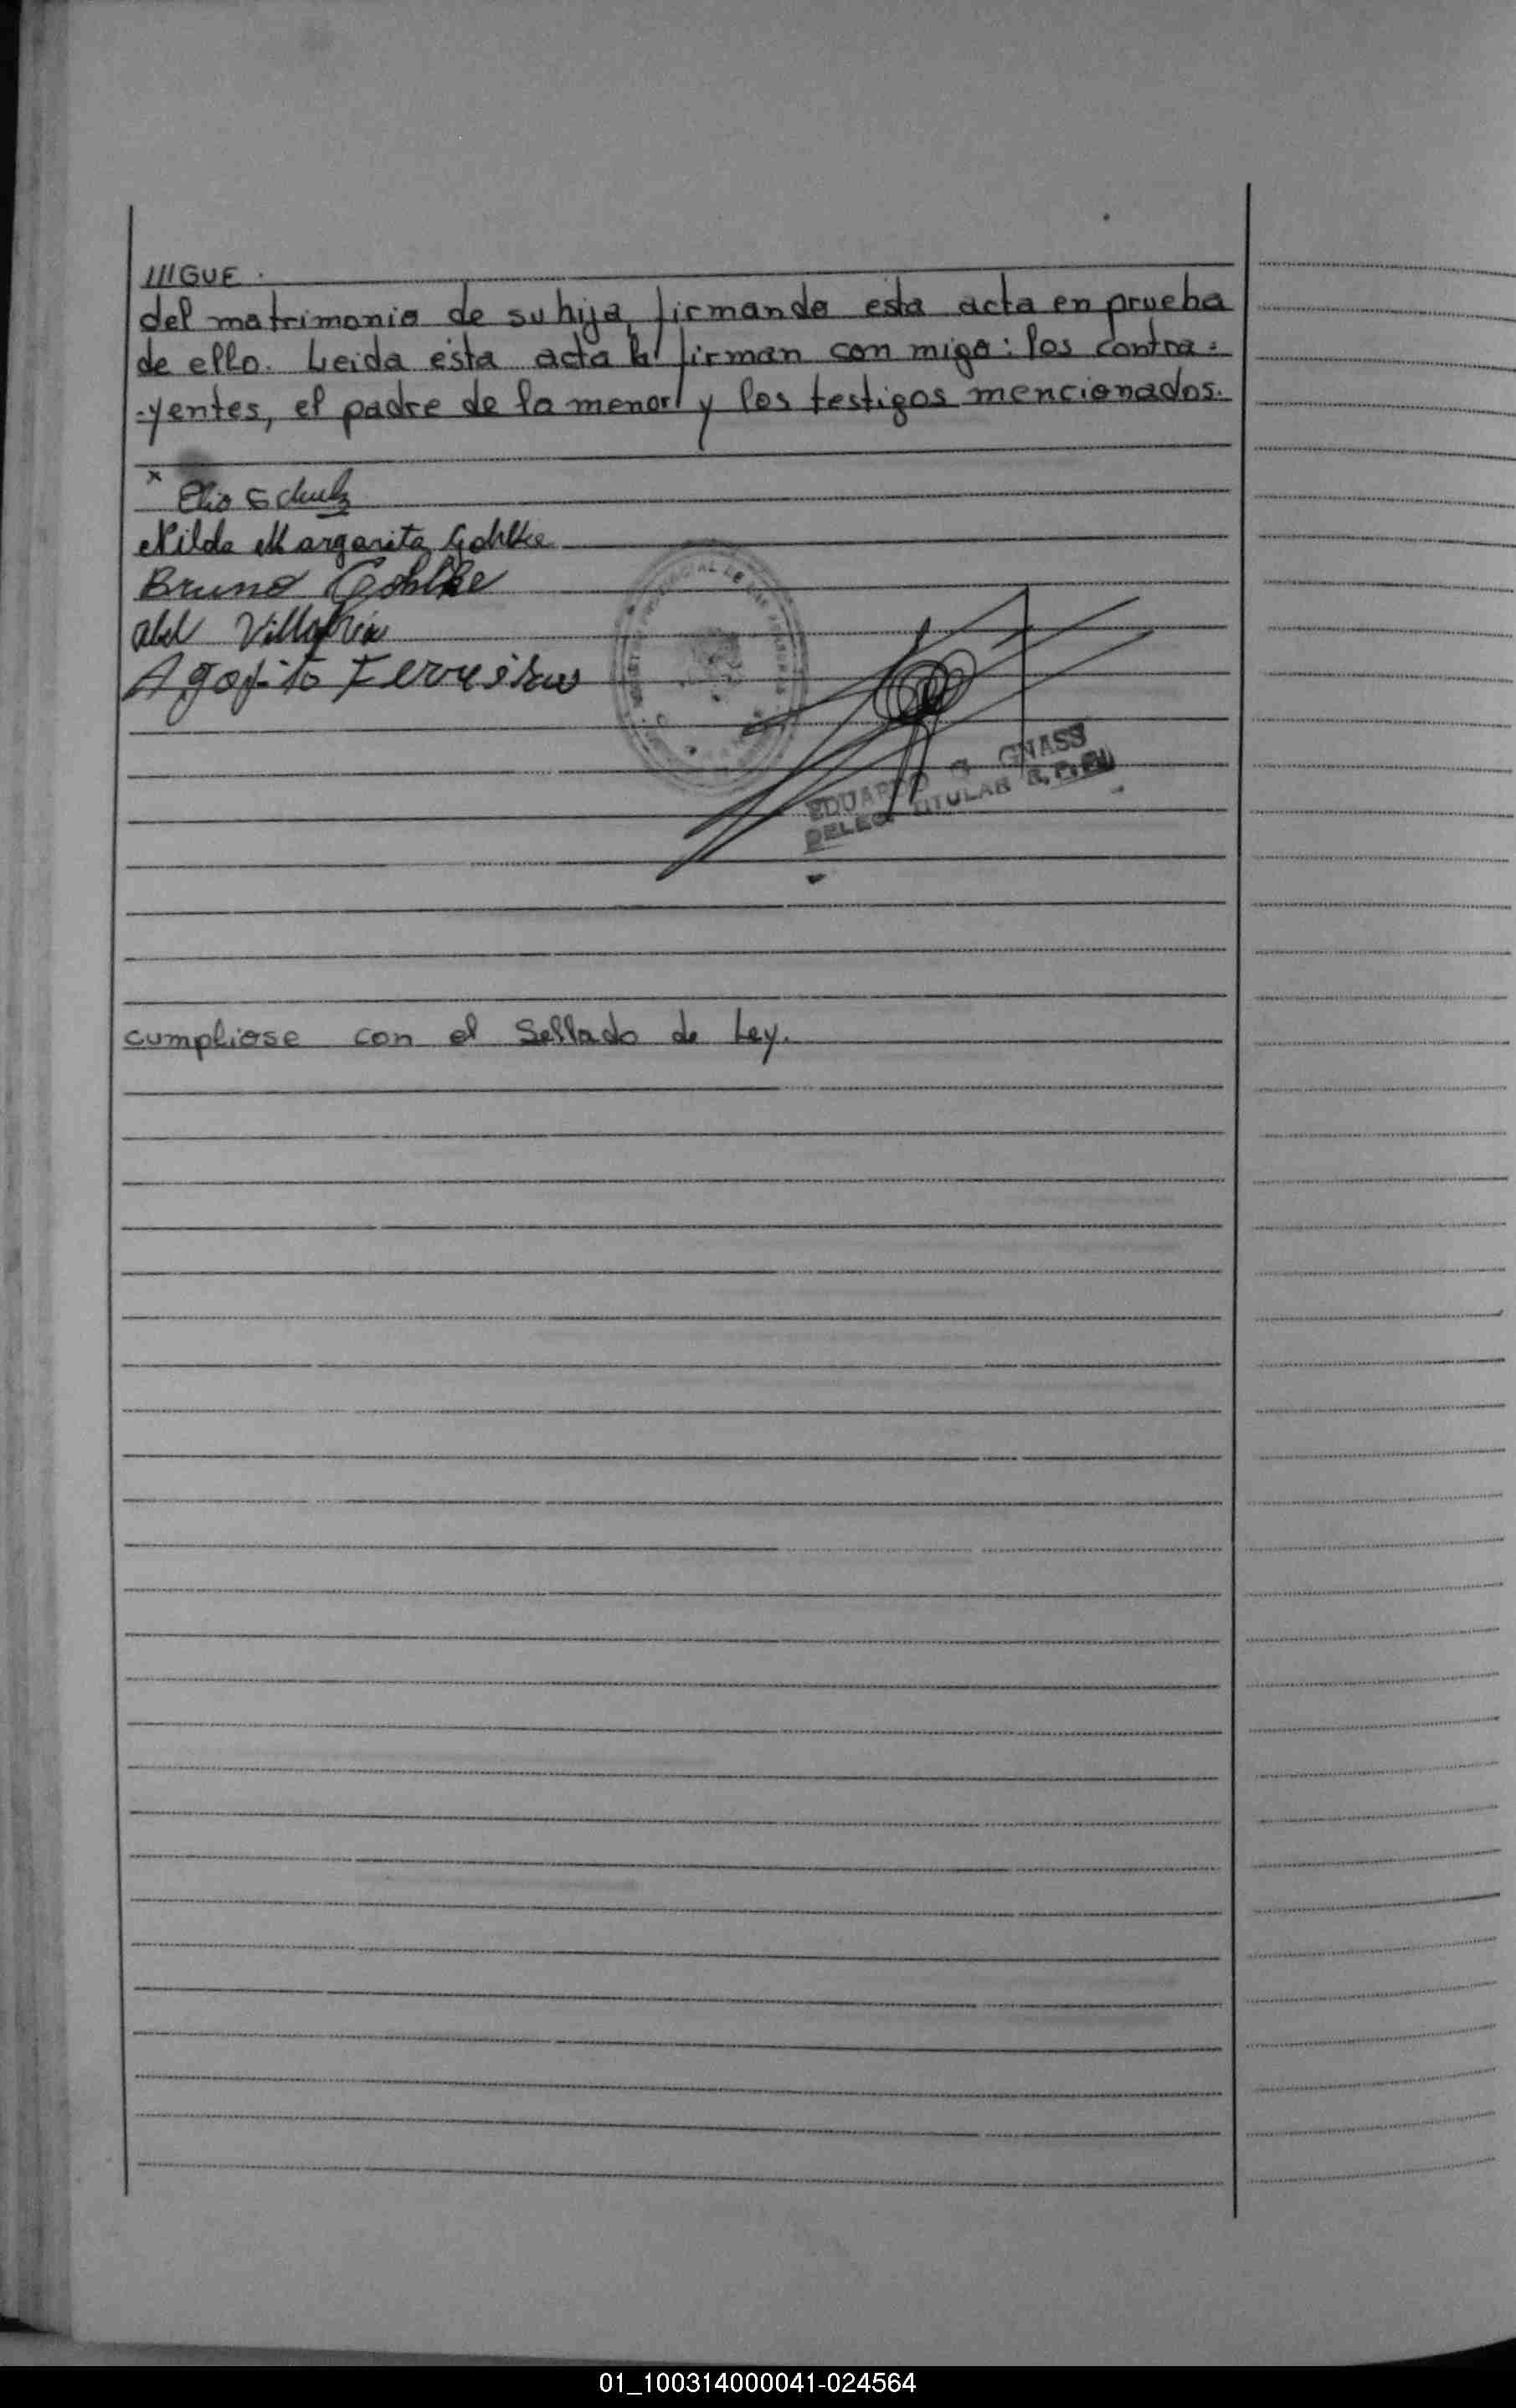 ///GUE.
del matrimonio de su hija, firmando esta acta en prueba
de ello. Leida esta acta la firman con migo: los contra=
-yentes, el padre de la menor y los testigos mencionados.
x Elio Schulz
Nilda Margarita Gohlke
Bruno Gohlke
Abel
Agapito Ferreira
EDUARDO G. GNASS
DELEG. TITULAR R.P.P.
cumpliose con el Sellado de Ley.
01_100314000041-024564